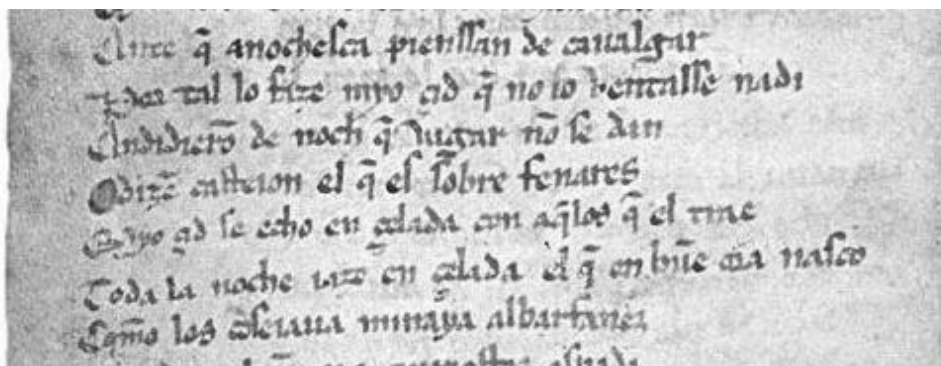 Ante q̃ anochesca pienssan de caualgar
Por tal lo faze myo çid q̃ no lo ventasse nadi
Andidierõ de noch q̃ vagar nõ se dan
O dizẽ casteion el q̃ es sobre fenares
Myo çid se echo en çelada con aq̃los q̃ el trae
Toda la noche iaze en çelada el q̃ en buẽ ora nasco
Commo los conseiaua minaya albarfanez